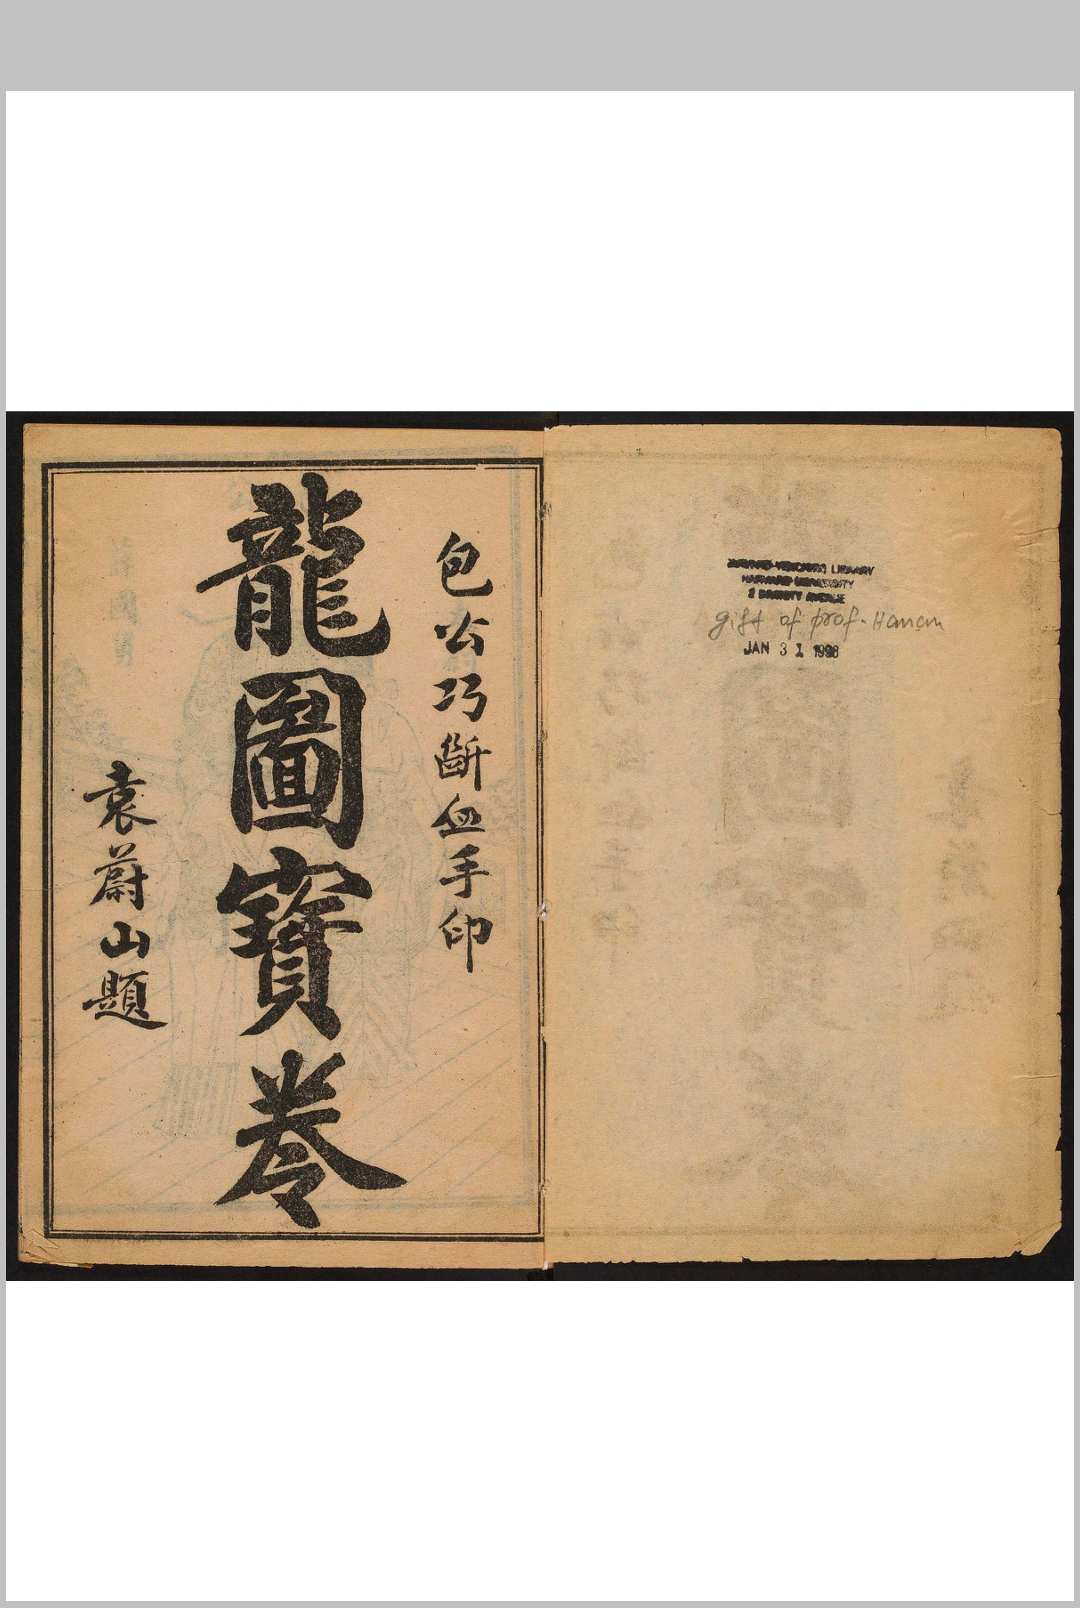 包公巧斷血手印
龍圖寶卷
袁蔚山題
HARVARD-YENCHING LIBRARY
HARVARD UNIVERSITY
2 DIVINITY AVENUE
gift of prof. Hanan
JAN 31 1998